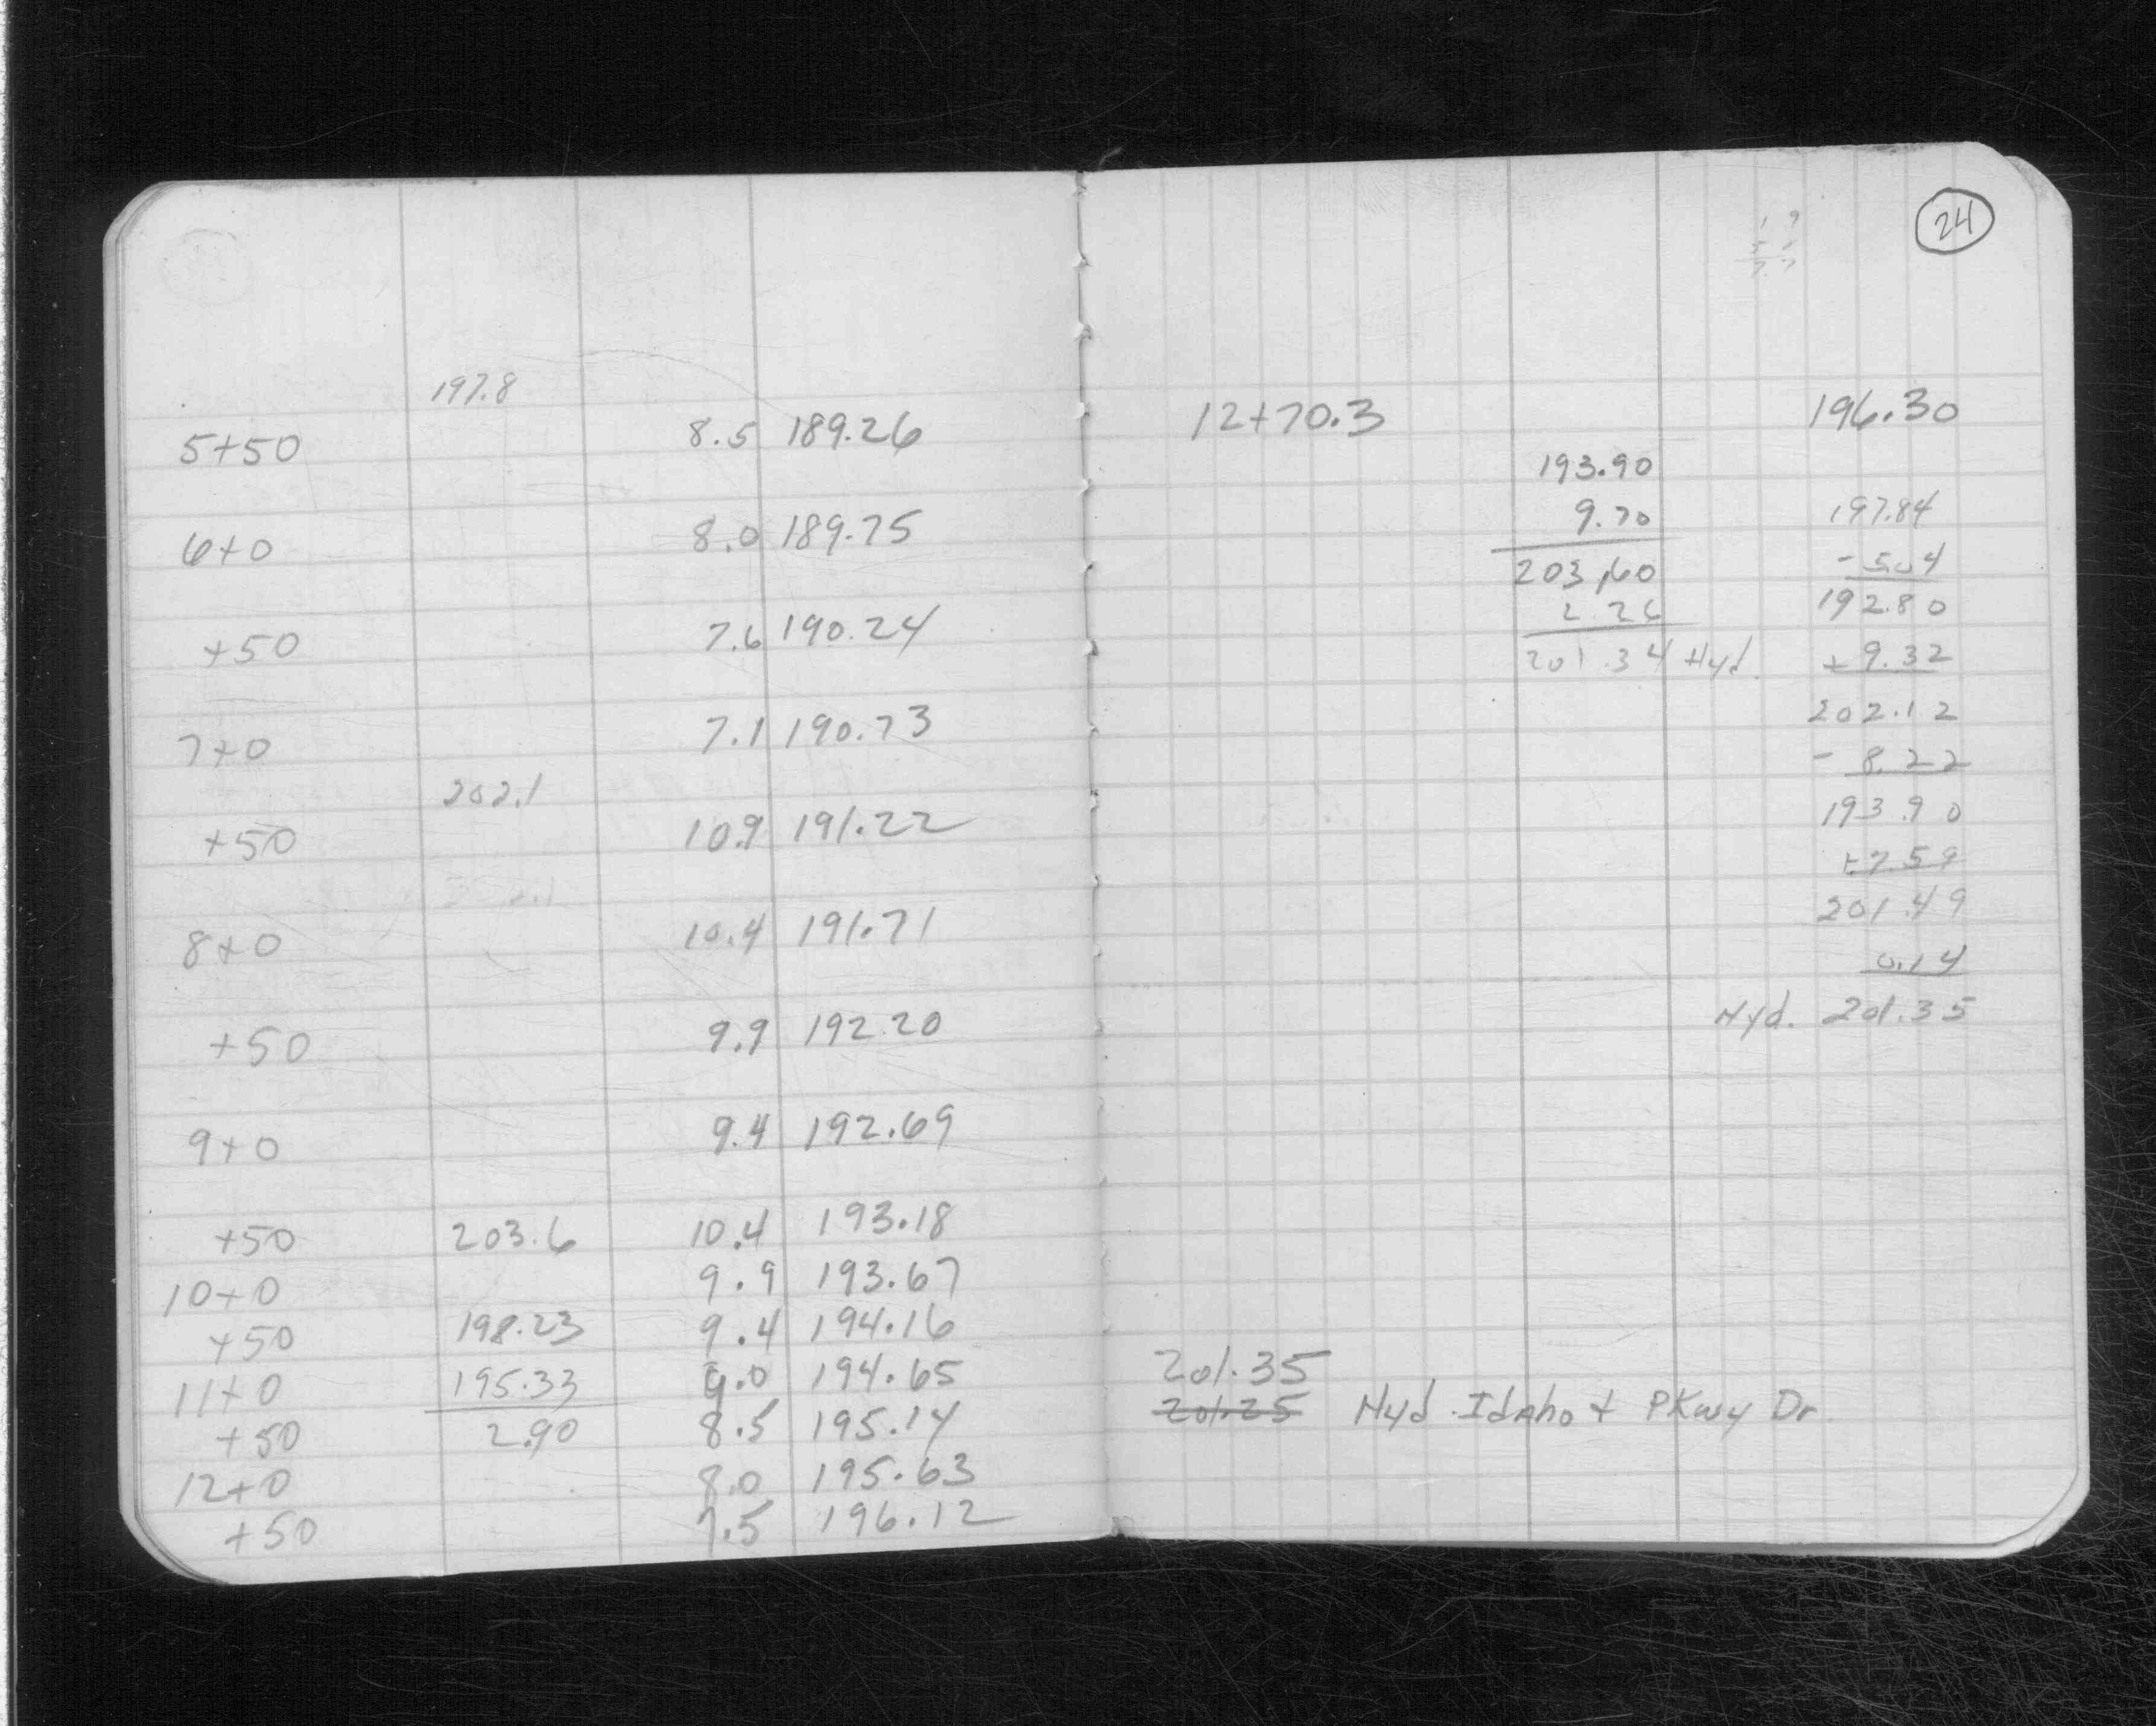 197.8
5+50 8.5 189.26
6+0 8.0 189.75
+50 7.6 190.24
7+0 7.1 190.73
202.1
+50 10.9 191.22
8+0 10.4 191.71
+50 9.9 192.20
9+0 9.4 192.69
+50 203.6 10.4 193.18
10+0 9.9 193.67
+50 198.23 9.4 194.16
11+0 195.33 9.0 194.65
+50 2.90 8.5 195.14
12+0 8.0 195.63
+50 7.5 196.12
24
12+70.3 196.30
193.90
9.70 197.84
203.60 - 5.04
2.26 192.80
201.34 Hyd. + 9.32
202.12
- 8.22
193.90
+7.59
201.49
0.14
Hyd. 201.35
201.35
201.25 Hyd. Idaho + PKwy Dr.